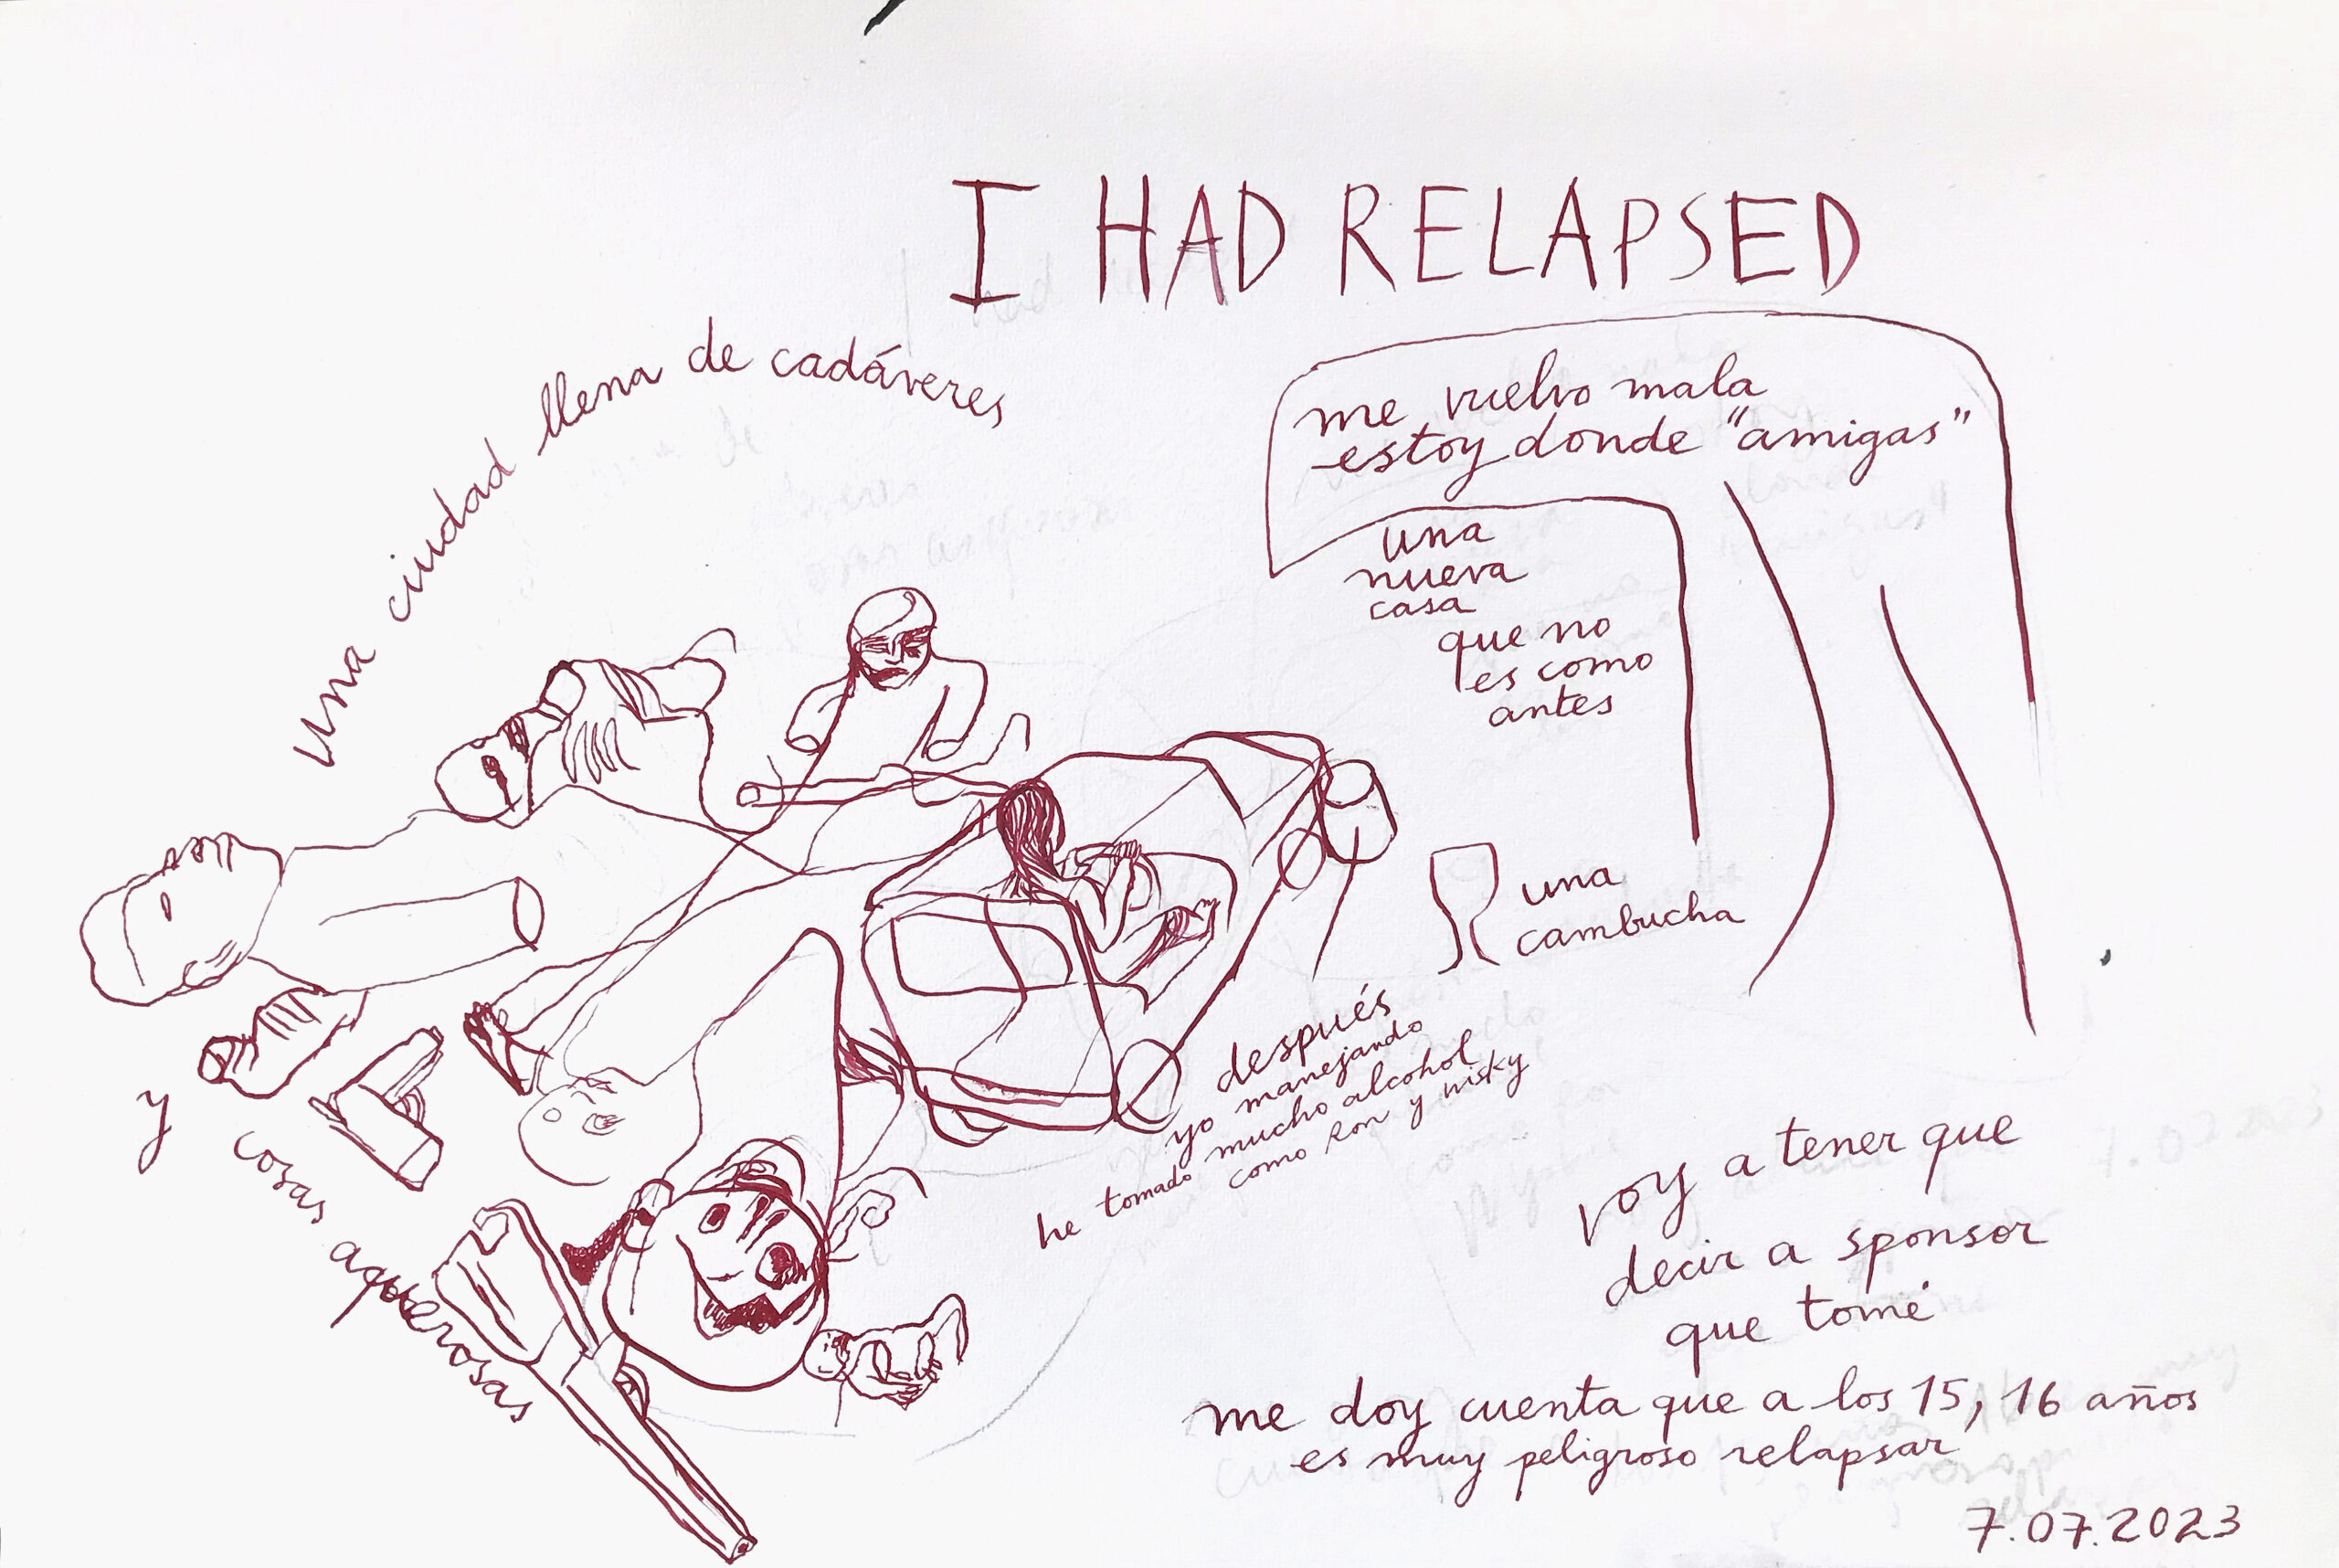 I HAD RELAPSED
una ciudad llena de cadáveres
me vuelvo mala
estoy donde "amigas"
una
nueva
casa
que no
es como
antes
una
cambucha
después
yo manejando
he tomado mucho alcohol
como Ron y wisky
y
cosas asquerosas
voy a tener que
decir a sponsor
que tomé
me doy cuenta que a los 15, 16 años
es muy peligroso relapsar
7.07.2023